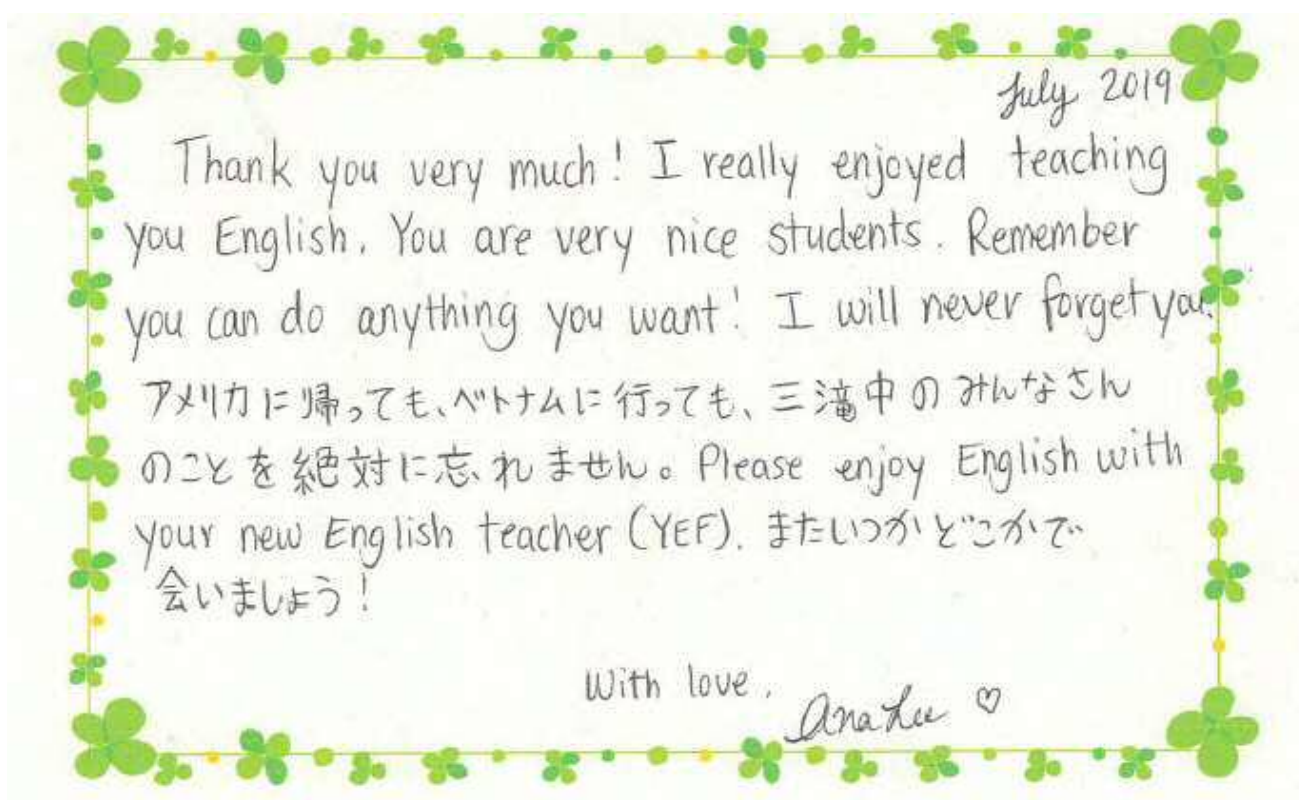 July 2019
Thank you very much! I really enjoyed teaching
you English. You are very nice students. Remember
you can do anything you want! I will never forget you.
アメリカに帰っても、ベトナムに行っても、三滝中のみんなさん
のことを絶対に忘れません。Please enjoy English with
your new English teacher (YEF). またいつかどこかで
会いましょう!
With love,
Ana Lee ♡